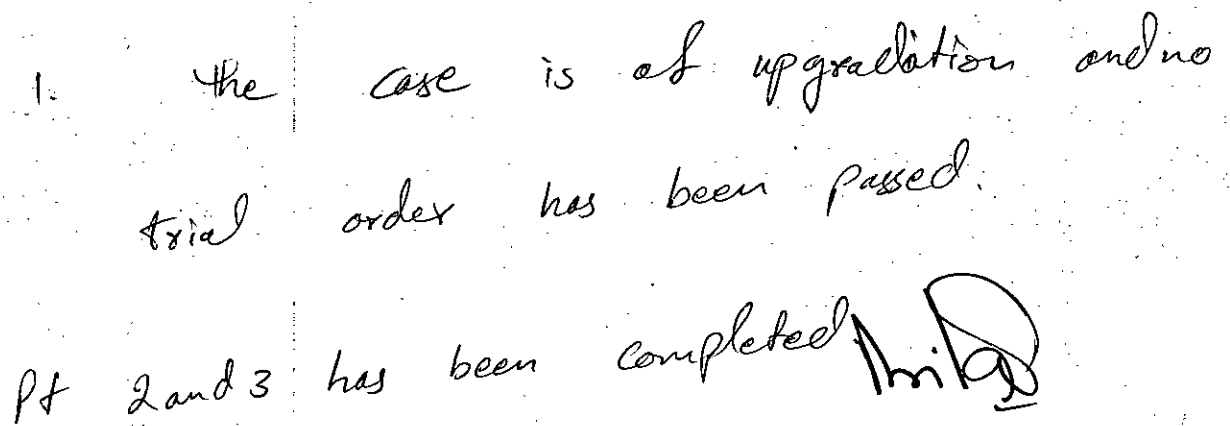 1. the case is of upgradation and no
trial order has been passed.
Pt 2 and 3 has been completed